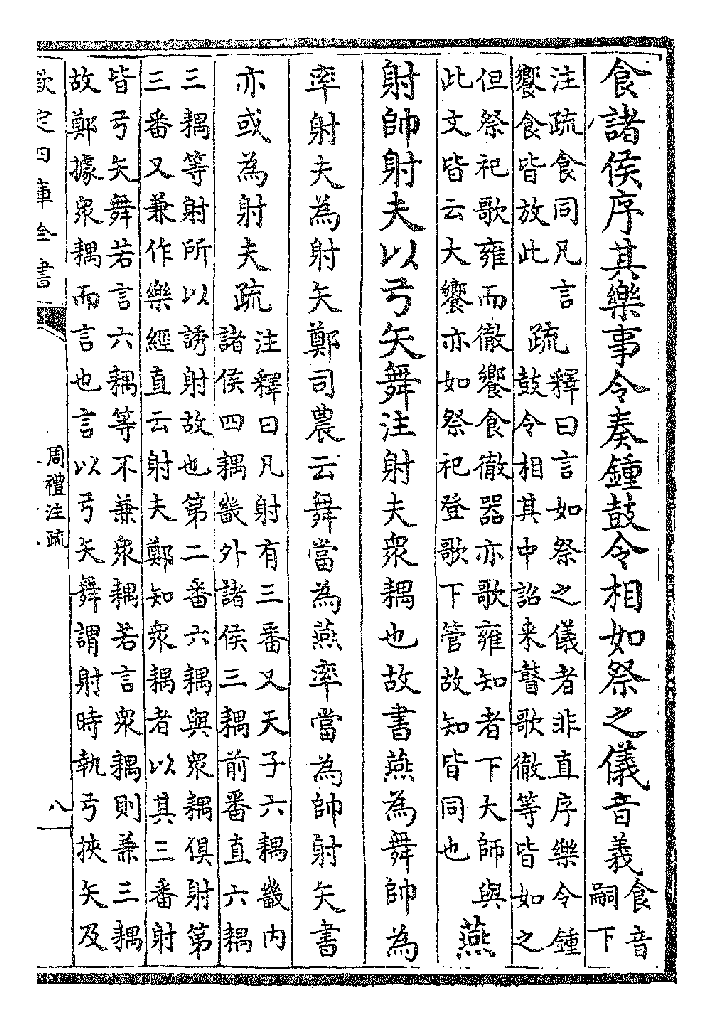 食諸侯序其樂事令奏鍾鼓令相如祭之儀音義
食音
嗣下
注疏食同凡言
饗食皆放此
疏
釋曰言如祭之儀者非直序樂令鍾
鼓令相其中詔来瞽歌徹等皆如之
但祭祀歌雍而徹饗食徹器亦歌雍知者下大師與
此文皆云大饗亦如祭祀登歌下管故知皆同也
燕
射帥射夫以弓矢舞注射夫衆耦也故書燕為舞帥為
率射夫為射矢鄭司農云舞當為燕率當為帥射矢書
亦或為射夫疏
注釋曰凡射有三番又天子六耦畿内
諸侯四耦畿外諸侯三耦前番直六耦
三耦等射所以誘射故也第二番六耦與衆耦俱射第
三番又兼作樂經直云射夫鄭知衆耦者以其三番射
皆弓矢舞若言六耦等不兼衆耦若言衆耦則兼三耦
故鄭據衆耦而言也言以弓矢舞謂射時執弓挾矢及
欽定四庫全書
周禮注疏
八